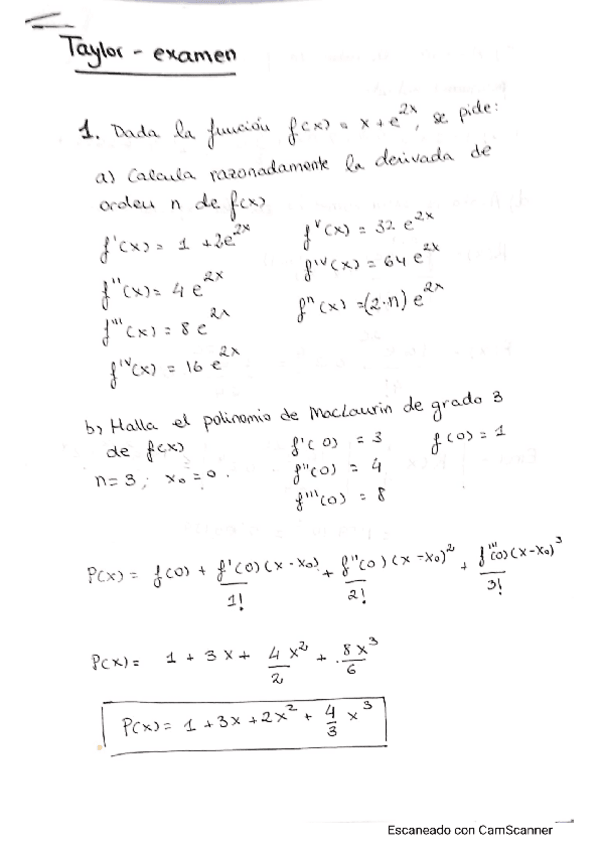 Taylor - examen
1. Dada la función f(x) = x + e^2x, se pide:
a) Calcula razonadamente la derivada de
orden n de f(x)
f'(x) = 1 + 2e^2x
f''(x) = 4 e^2x
f'''(x) = 8 e^2x
f'^V(x) = 16 e^2x
f^V(x) = 32 e^2x
f'^V(x) = 64 e^2x
f^n(x) = (2·n) e^2x
b) Halla el polinomio de MacLaurin de grado 3
de f(x)
n = 3; x₀ = 0.
f'(0) = 3
f''(0) = 4
f'''(0) = 8
f(0) = 1
P(x) = f(0) + f'(0)(x-x₀)/1! + f''(0)(x-x₀)²/2! + f'''(0)(x-x₀)³/3!
P(x) = 1 + 3x + 4x²/2 + 8x³/6
P(x) = 1 + 3x + 2x² + 4/3 x³
Escaneado con CamScanner